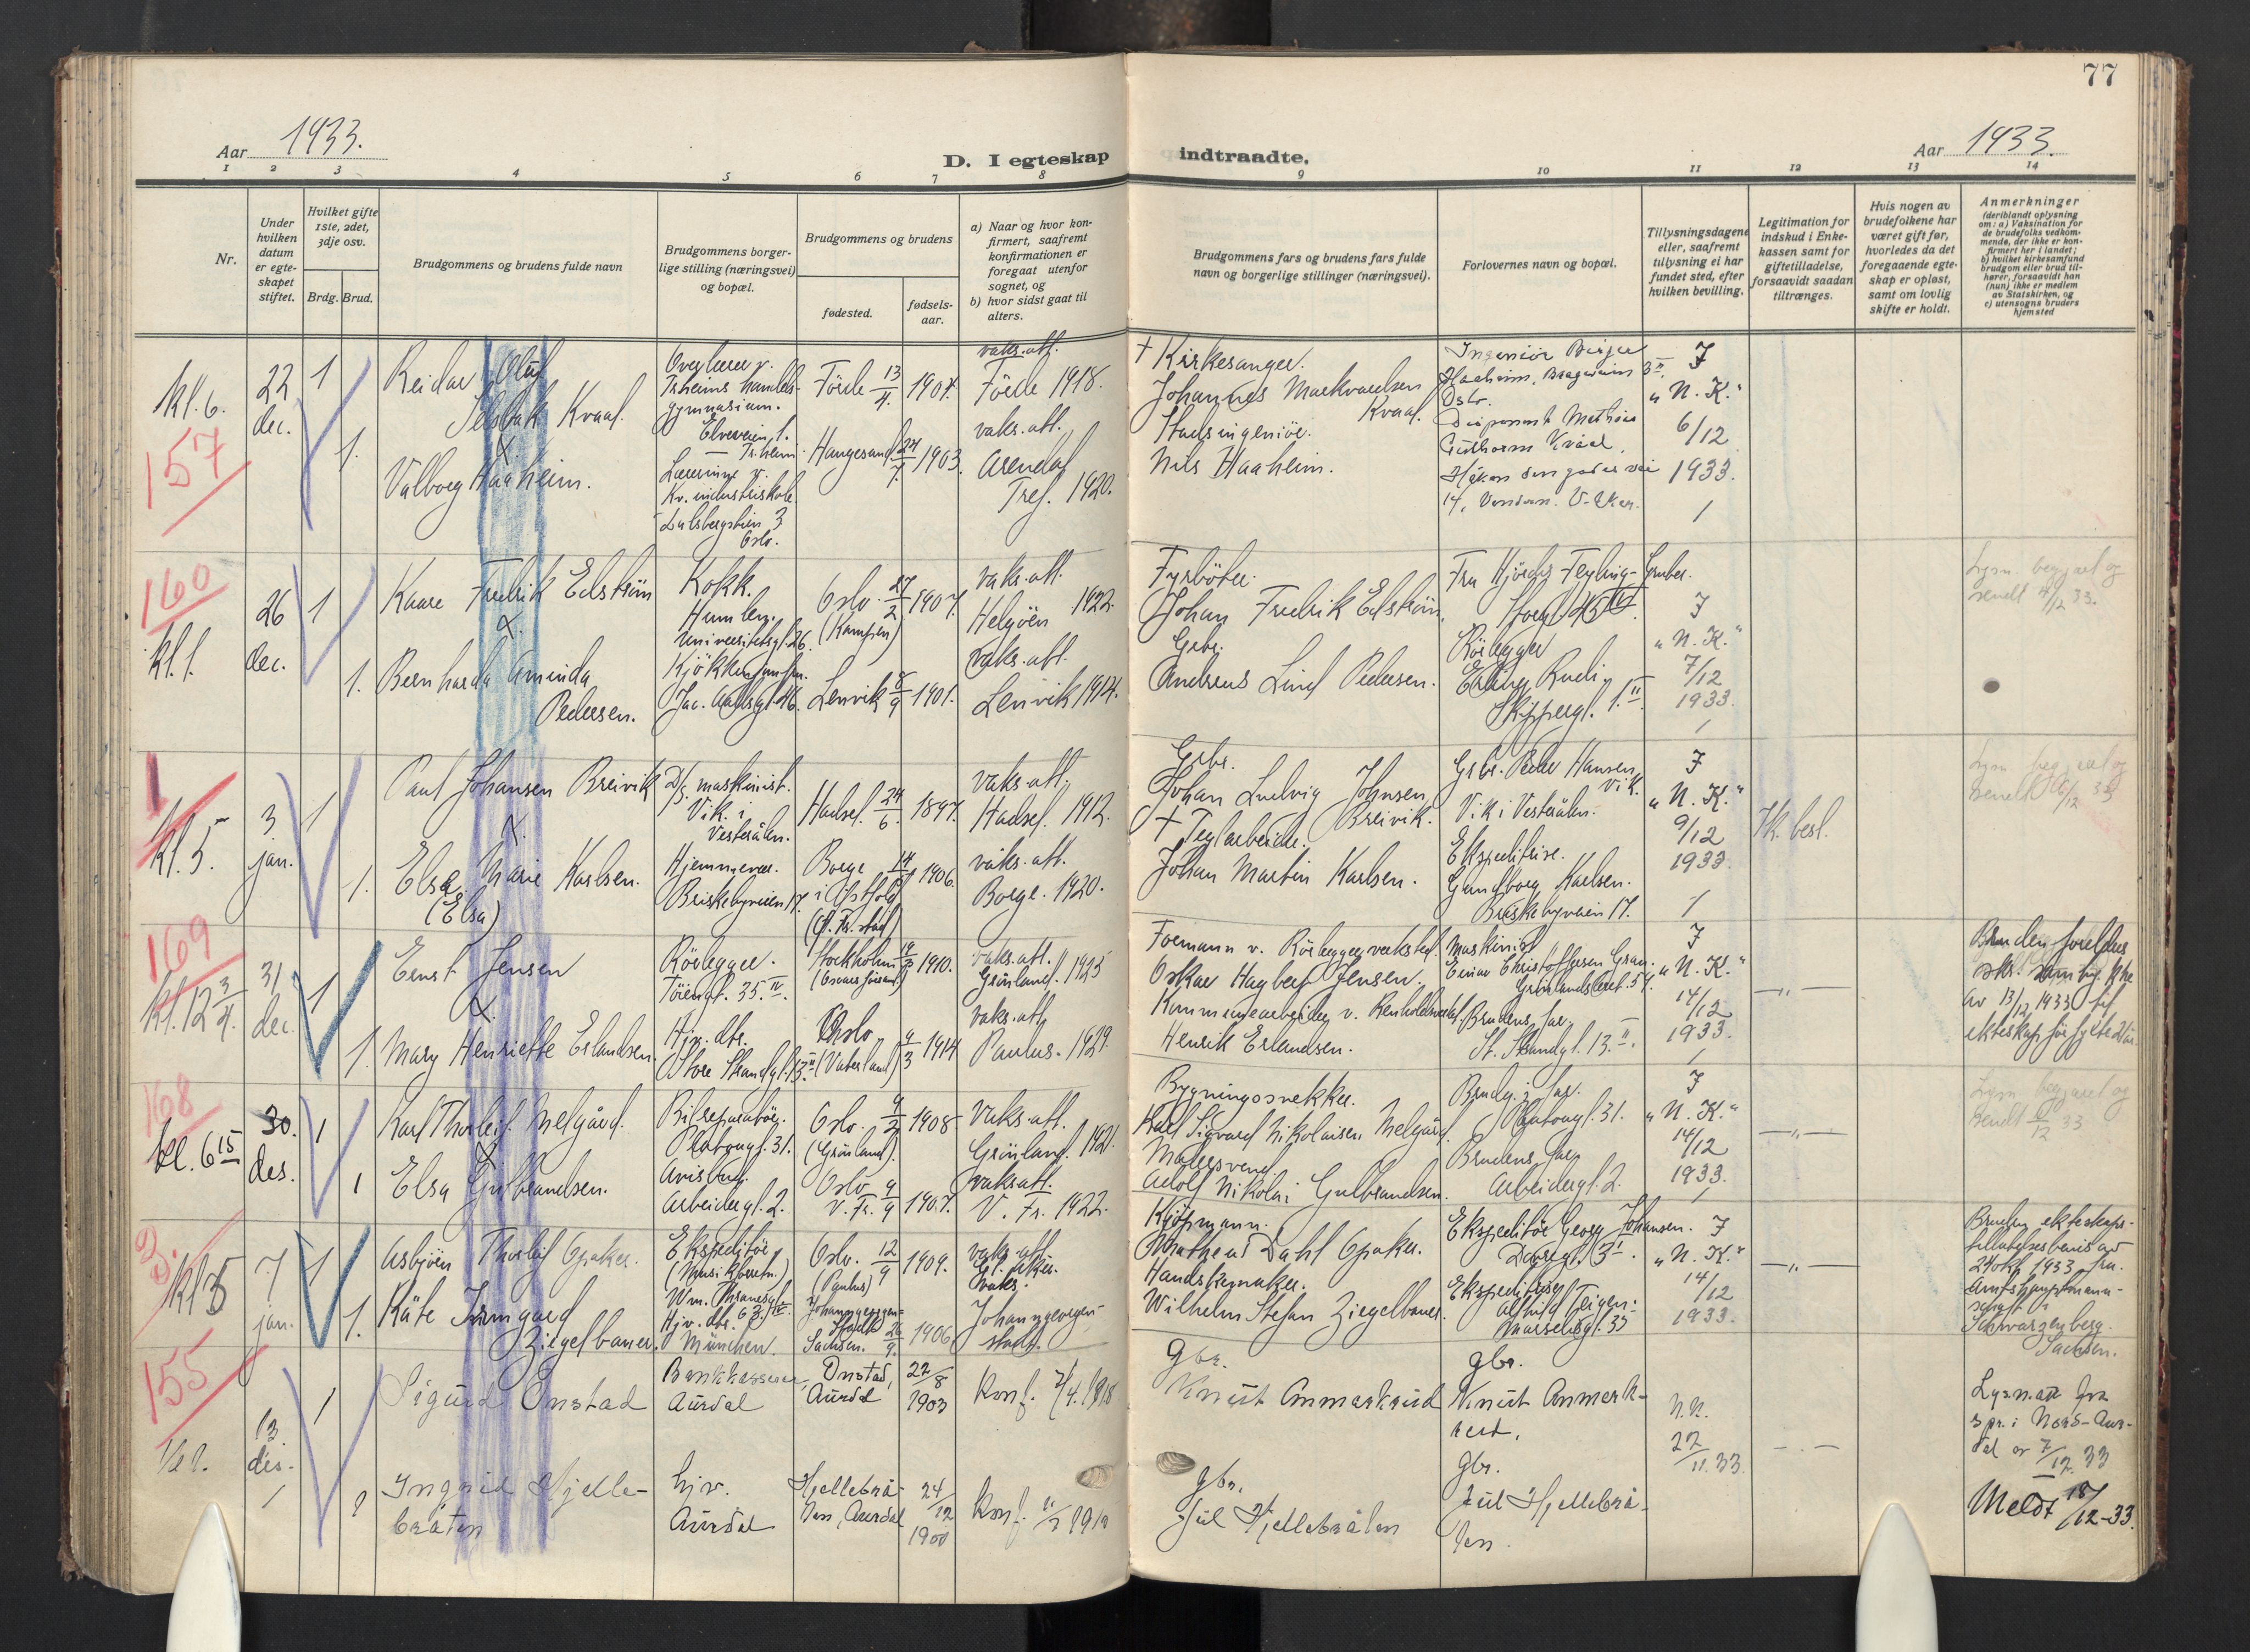 77
Aar 1933.
D. I egteskap
indtraadte.
Aar 1933.
1 2 3 4 5 6 7 8 9 10 11 12 13 14
Nr.
Under
hvilken
datum
er egte-
skapet
stiftet.
Hvilket gifte
1ste, 2det,
3dje osv.
Brdg. Brud.
Brudgommens og brudens fulde navn
Brudgommens borger-
lige stilling (næringsvei)
og bopæl.
Brudgommens og brudens
fødested.
fødsels-
aar.
a) Naar og hvor kon-
firmert, saafremt
konfirmationen er
foregaat utenfor
sognet, og
b) hvor sidst gaat til
alters.
Brudgommens fars og brudens fars fulde
navn og borgerlige stillinger (næringsvei).
Forlovernes navn og bopæl.
Tillysningsdagene
eller, saafremt
tillysning ei har
fundet sted, efter
hvilken bevilling.
Legitimation for
indskud i Enke-
kassen samt for
giftetilladelse,
forsaavidt saadan
tiltrænges.
Hvis nogen av
brudefolkene har
været gift før,
hvorledes da det
foregaaende egte-
skap er opløst,
samt om lovlig
skifte er holdt.
Anmerkninger
(deriblandt oplysning
om: a) Vaksination for
de brudefolks vedkom-
mende, der ikke er kon-
firmert her i landet;
b) hvilket kirkesamfund
brudgom eller brud til-
hører, forsaavidt han
(hun) ikke er medlem
av Statskirken, og
c) utensogns bruders
hjemsted
kl. 6.
157
22
dec.
1
1.
Reidar Oluf
Selsbak Kvaal.
&.
Valborg Haaheim.
Overlærer v.
Tr.heims handels-
gymnasium.
Elveveien 1.
Tr.heim.
Lærerinne v.
Kv. industriskole
3
Oslo.
Förde 13/4 1904.
Haugesund 24/7 1903.
vaks. att.
Förde 1918.
vaks. att.
Arendal
Tref. 1920.
† Kirkesanger.
Johannes Markvardsen
Kvaal.
Stadsingeniör.
Nils Haaheim.
Ingeniör Birger
Haaheim,
Oslo.
Disponent Mathias
Guthorm Kvaal,
Håkon den godes vei
14, V. Aker.
J
"N. K."
6/12
1933.
1
160
kl. 1.
26
dec.
1
1.
Kaare Fredrik Edström
&.
Bernharda Aminda
Pedersen.
Kokk.
Humlen,
Universitetsgt. 26.
Jac. Aallsgt. 46.
Oslo 27/2 1907.
(Kampen)
Lenvik 8/9 1901.
vaks. att.
Helgöen 1922.
vaks. att.
Lenvik 1917.
Fyrböter.
Johan Fredrik Edström.
Grbr.
Andreas Lind Pedersen.
Fru Hjördis Feyling-Gruber.
Storgt. 25 IV.
Rörlegger
Erling Rudi,
Skippergt. 1. II.
J
"N. K."
7/12
1933.
1
Lysn. begjært og
sendt 7/12 33.
1
kl. 5.
3
jan.
1
1.
Paul Johansen Breivik
&.
Elsa Marie Karlsen.
(Elsa)
D/s maskinist.
Vik i
Vesterålen.
Hjemmevær.
Briskebyveien 17.
Hadsel 24/6 1897.
Borge 14/ 1906.
i Östfold
(v. Fr.stad)
vaks. att.
Hadsel 1912.
vaks. att.
Borge. 1920.
Grbr.
Johan Ludvig Johnsen
Breivik.
† Teglarbeider.
Johan Martin Karlsen.
Grbr. Peder Hansen
Vik.
Vik i Vesterålen.
Ekspeditrise.
Gundborg Karlsen.
Briskebyveien 17.
J
"N. K."
9/12
1933.
1
Tk. besl.
Lysn. begjæret og
sendt 12 33
169
kl. 12 3/4.
31.
dec.
1
1.
Ernst Jensen
&.
Mary Henriette Erlandsen.
Rörlegger.
Töiengt. 35. IV.
Hjv. dtr.
Store Strandgt. 13. II
Stockholm 1910.
Oslo 4/3 1914
(Vaterland)
vaks. att.
Grönland. 1925
vaks. att.
Paulus. 1929.
Formann v. Rörleggerverksted.
Oskar Hagbert Jensen.
Kommunearbeider v. Renholdsverket.
Henrik Erlandsen.
Maskinist
Einar Christoffersen Gran.
Grönlandsleret 57.
Brudens far.
St. Strandgt. 13. II.
J
"N. K."
14/12
1933.
1
—„—
Bruden foreldres
skr. samtykke
av 13/12 1933 til
ekteskap för fylte 21 år.
168
kl. 6 15
30.
des.
1
1
Karl Thorleif Melgård.
&
Elsa Gulbrandsen.
Bilreparatör.
Platougt. 31.
Avisbud.
Arbeidergt. 2.
Oslo. 9/2 1908
(Grönland).
Oslo 9/9 1907.
V. Fr.
Vaks. att.
Grönland. 1921.
vaks. att.
V. Fr. 1922.
Bygningssnekker.
Karl Sigvard Nikolaisen Melgård.
Malersvend.
Adolf Nikolai Gulbrandsen.
Brudg.s far.
Platougt. 31.
Brudens far,
Arbeidergt. 2.
J
"N. K."
14/12
1933.
1
—„—
Lysn. begjæret og
sendt /12 33
3.
kl 5
7
jan.
1
1.
Asbjörn Thorleif Opaker.
Käte Irmgard
Ziegelbauer.
Ekspeditör
(Musikforretn.)
Wm. Thranesgt.
Hjv. dtr. 63. IV.
München.
Oslo. 12/9 1909.
(Paulus)
Johanngeorgen-
stadt 26/9 1906
Sachsen.
vaks. att.
V. Aker.
vaks.
Johanngeorgen-
stadt.
Kjöpmann.
Dahl Opaker.
Handskemaker.
Wilhelm Stefan Ziegelbauer.
Ekspeditör Georg Johansen.
3 II.
Ekspeditrise
Alfhild Teigen:
Marselisgt. 33
J
"N. K."
14/12
1933.
—„—
Brudens ekteskaps-
tillatelsesbevis av
24 okt. 1933 fra
Amtshauptmann-
schaft i
Schwarzenberg.
Sachsen.
155
kl.
13.
des.
1
1
Sigurd Onstad
Ingrid Hjelle-
bråten
Bankkasserer,
Aurdal
hjv.
Aurdal
Onstad,
Aurdal
22/8
1903
Hjellebrå-
ten, Aurdal
24/12
1900
Konf. 7/4. 1918
Konf.
gbr.
Knut Onmarkrud
gbr.
Jul Hjellebråten
gbr.
Knut Onmerk-
rud,
gbr.
Jul Hjellebrå-
ten
N.N.
22/11.33.
—„—
Lysn.att. fra
spr. i Nord-Aur-
dal av 7/12 33
Meldt 18/12-33.